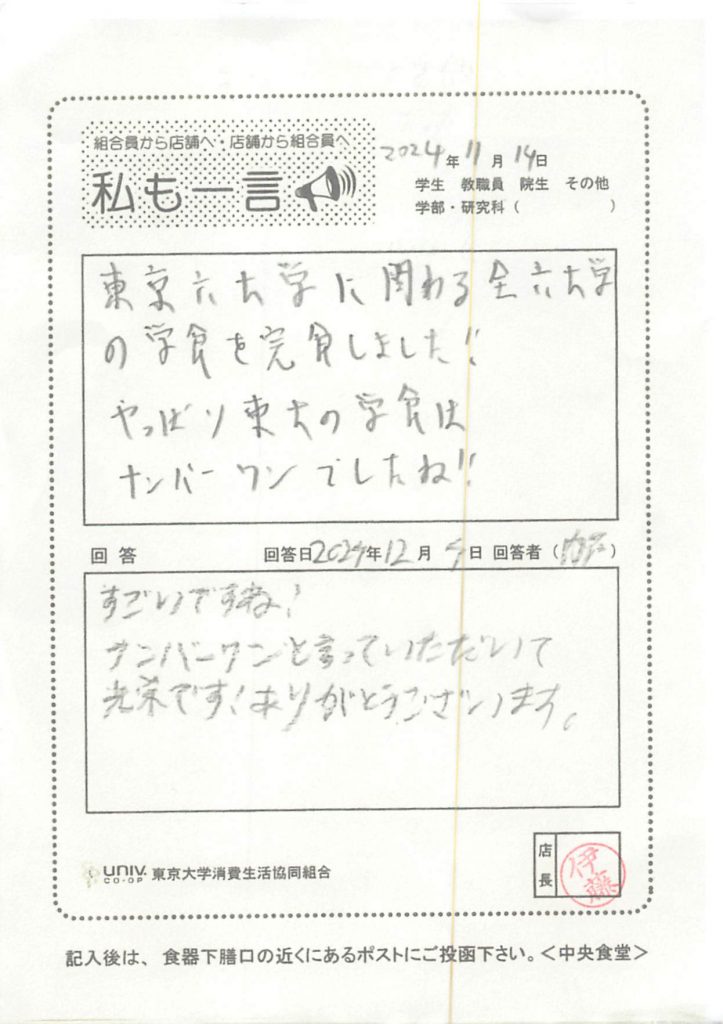 組合員から店舗へ・店舗から組合員へ
私も一言
2024年11月14日
学生 教職員 院生 その他
学部・研究科( )
東京六大学に関わる全六大学
の学食を完食しました!!
やっぱり東大の学食は
ナンバーワンでしたね!!
回答 回答日2024年12月4日 回答者( )
すごいですね!
ナンバーワンと言っていただいて
光栄です!ありがとうございます。
店長
伊藤
UNIV.
CO-OP
東京大学消費生活協同組合
記入後は、食器下膳口の近くにあるポストにご投函下さい。<中央食堂>